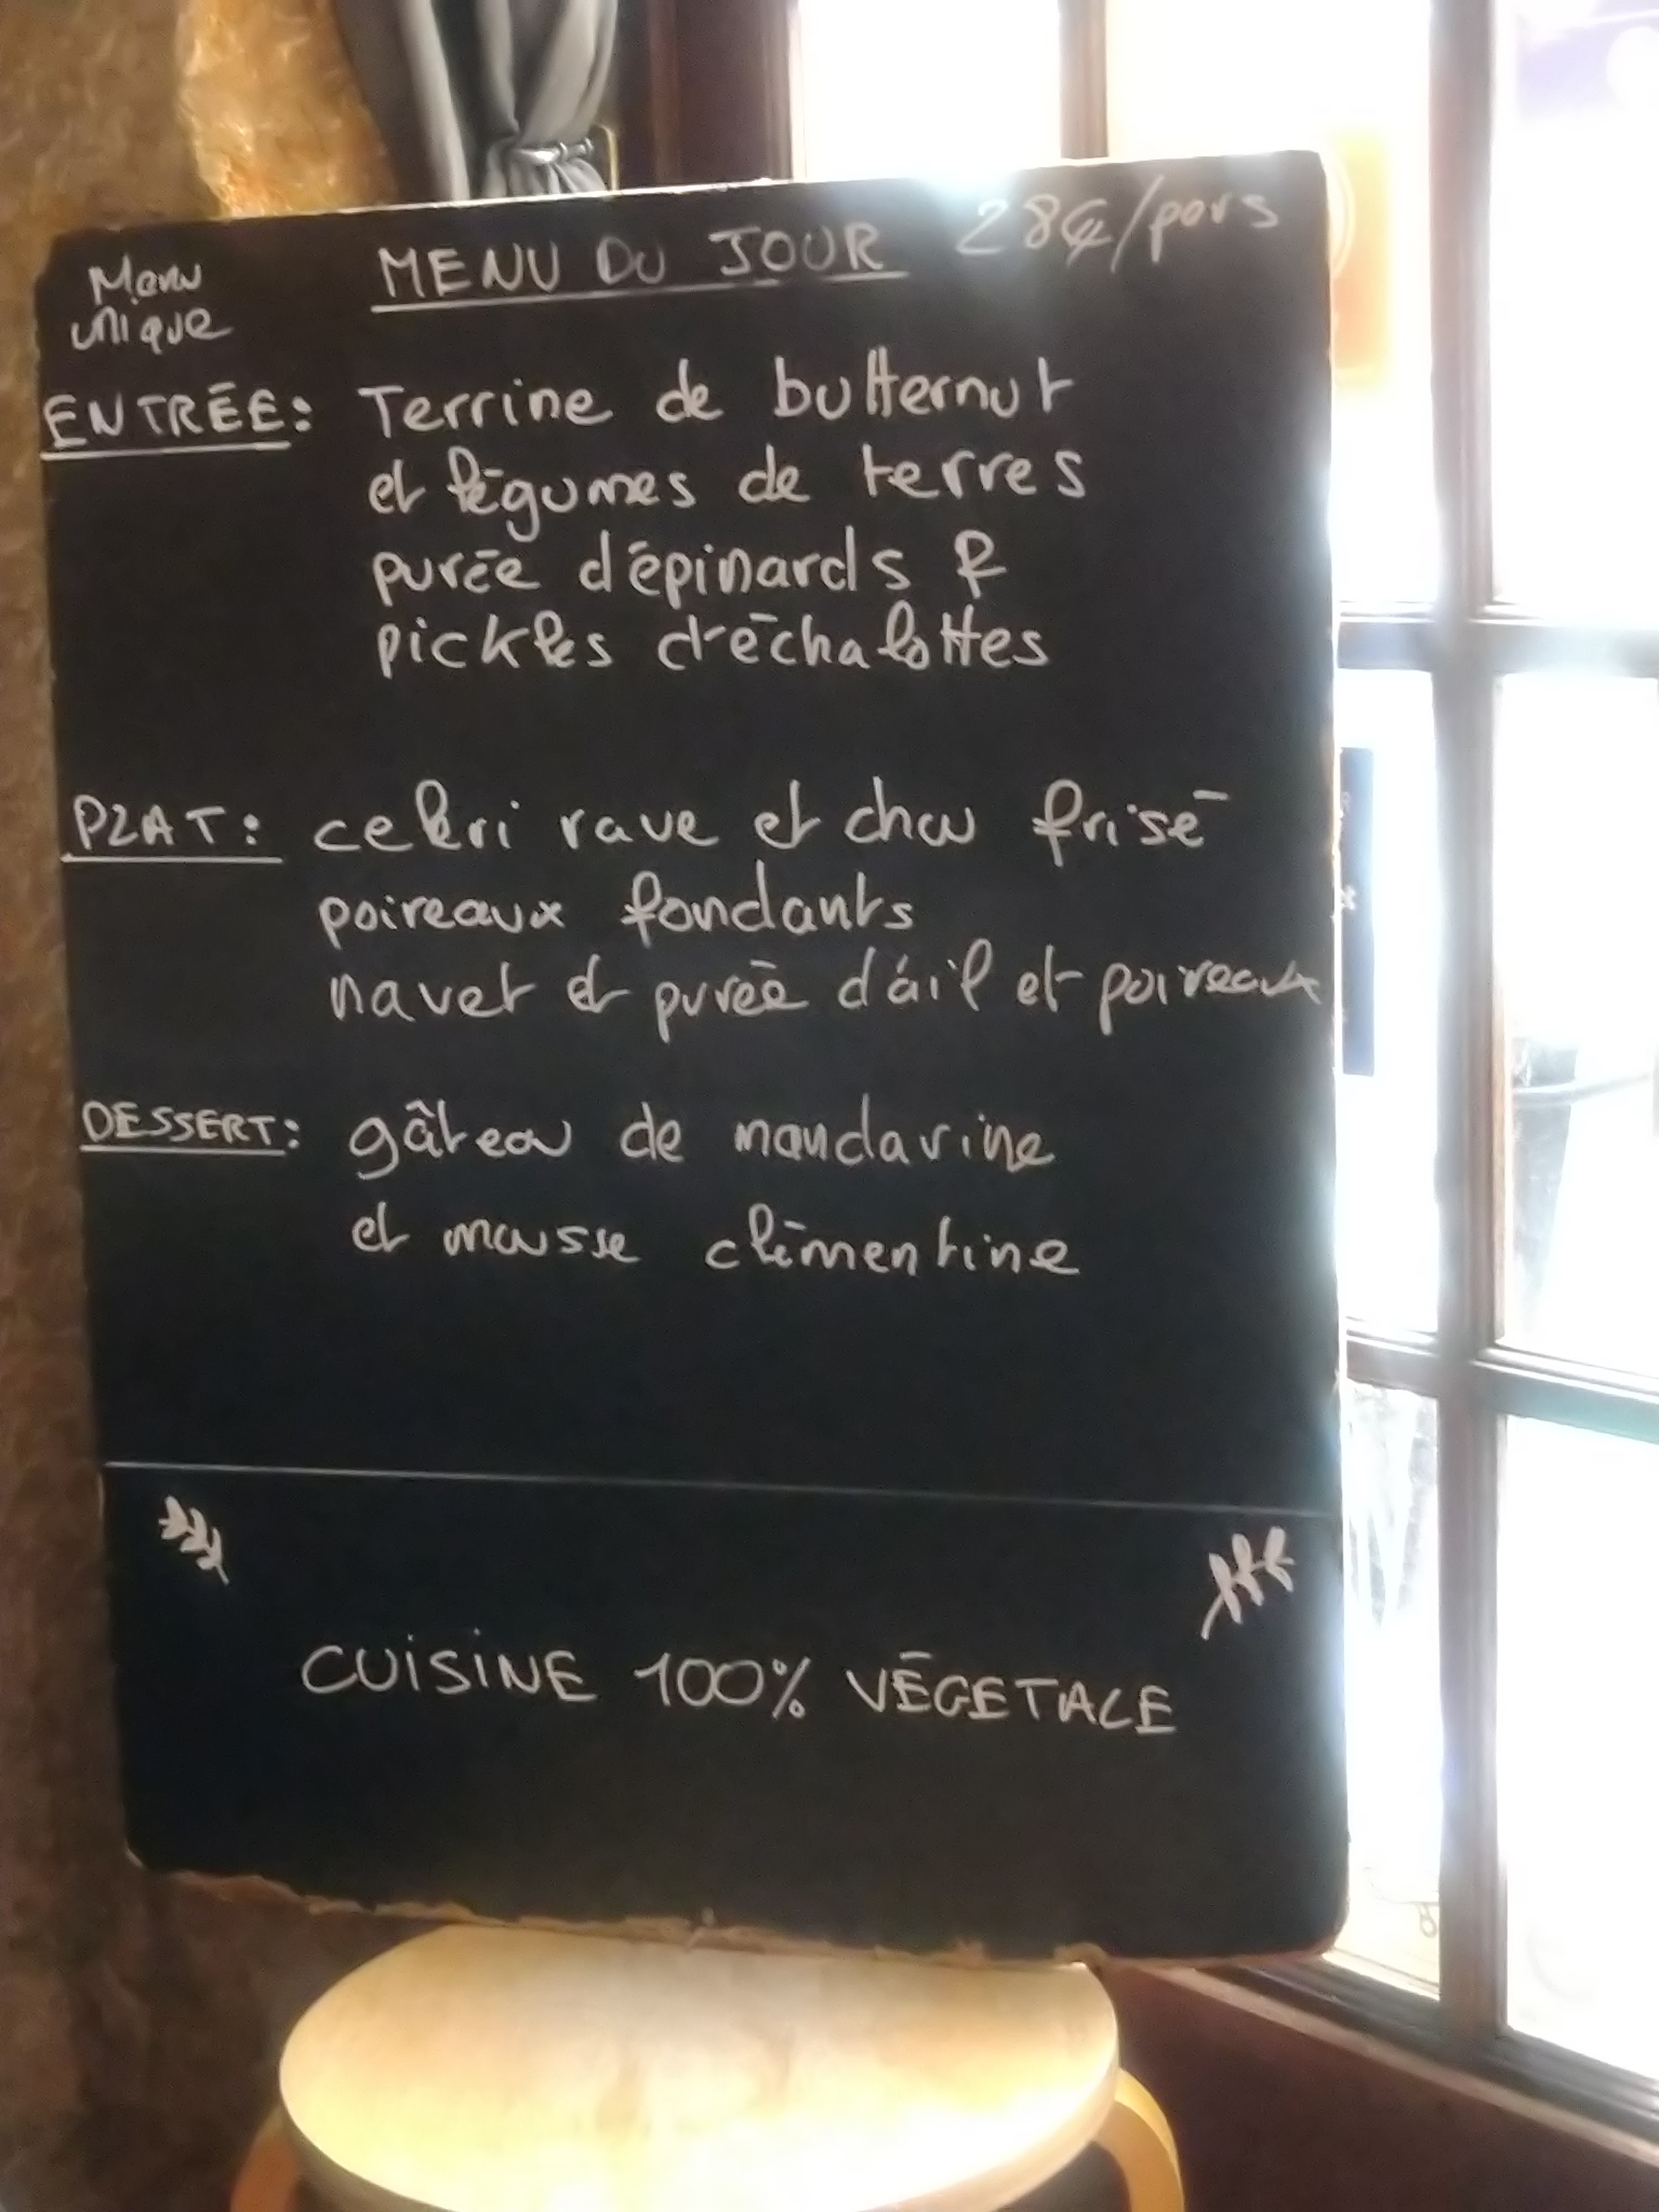 Menu
unique
MENU DU JOUR 28€/pers
ENTRÉE: Terrine de butternut
et légumes de terres
purée d'épinards &
pickles d'échalottes
PLAT: celeri rave et chou frisé
poireaux fondants
navet et purée d'ail et poireaux
DESSERT: gâteau de mandarine
et mousse clémentine
CUISINE 100% VÉGETALE